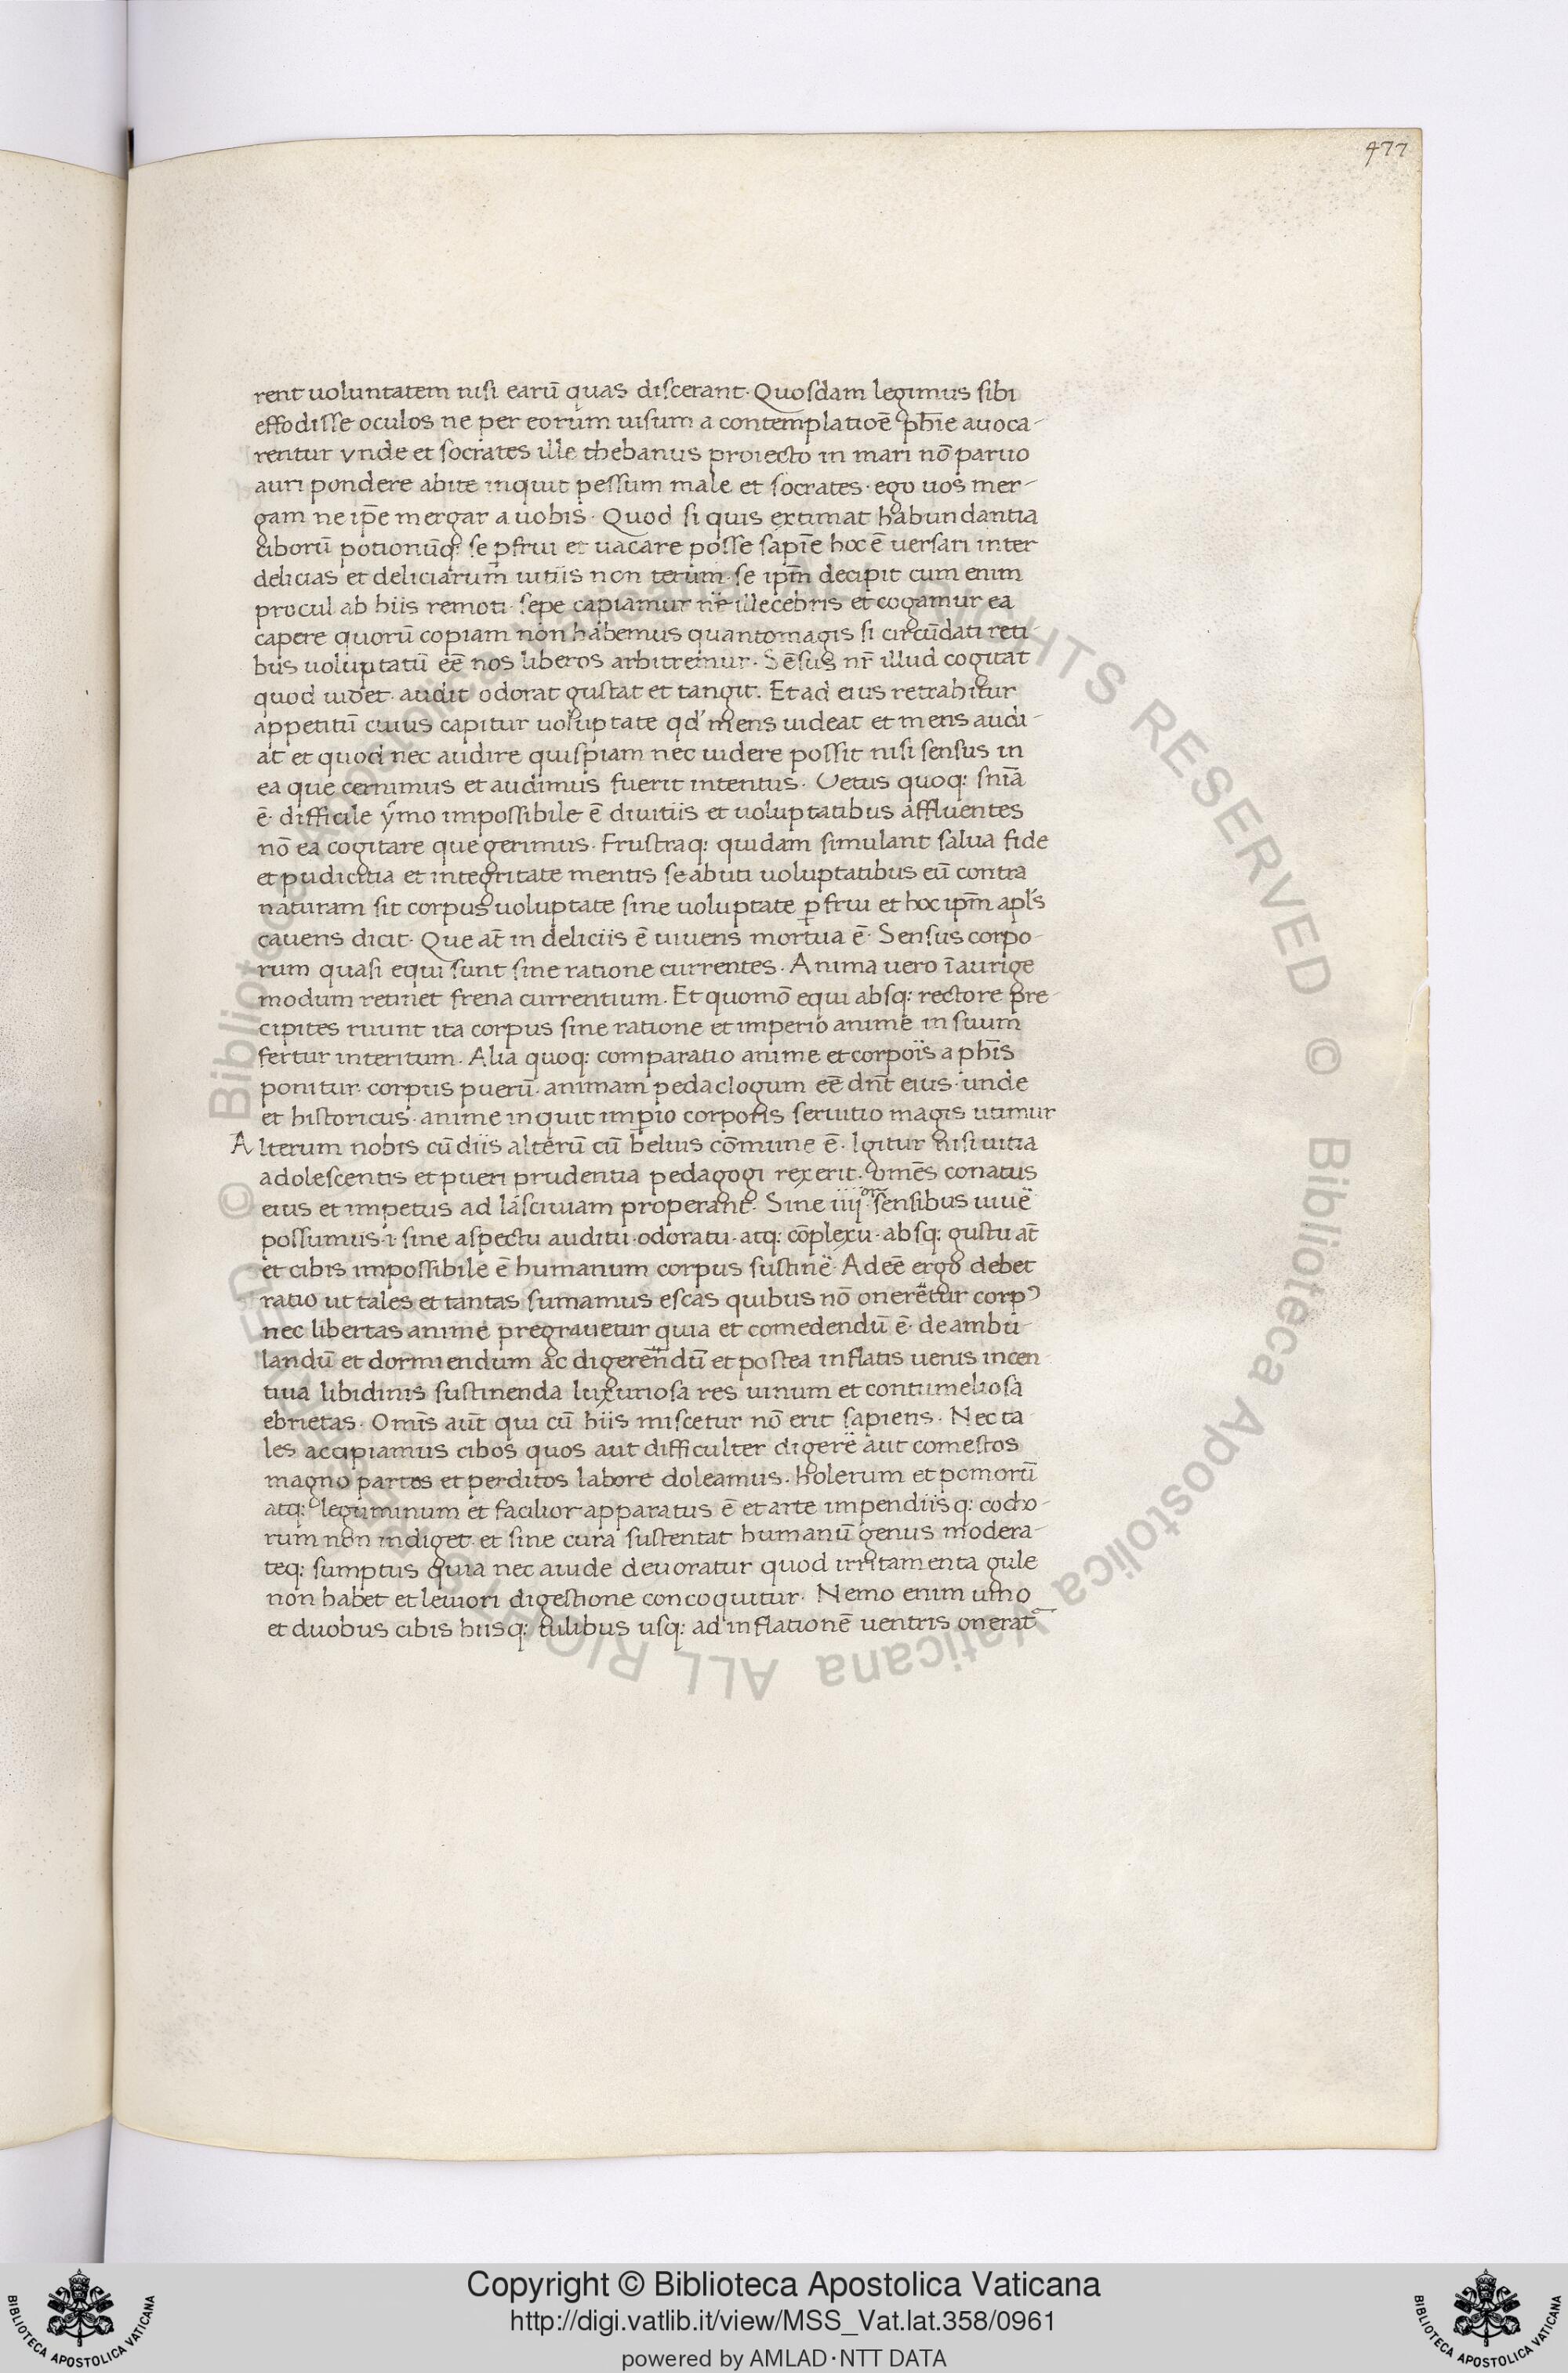 477
rent uoluntatem nisi earū quas discerant. Quosdam legimus sibi
effodisse oculos ne per eorum uisum a contemplatioē ph̄ie auoca-
rentur vnde et socrates ille thebanus proiecto in mari nō paruo
auri pondere abite inquit pessum male et socrates. ego uos mer-
gam ne ip̄e mergar a uobis. Quod si quis extimat habundantia
ciborū potionūq: se p̱frui et uacare posse sapiē hoc ē uersari inter
delicias et deliciarum uitiis non terum. se ip̄m decipit cum enim
procul ab hiis remoti. sepe capiamur nr̄e illecebris et cogamur ea
capere quorū copiam non habemus quantomagis si circūdati reti-
bus uoluptatū eē nos liberos arbitremur. Sēsus nr̄ illud cogitat
quod uidet. audit odorat gustat et tangit. Et ad eius retrahitur
appetitū cuius capitur uoluptate qd' mens uideat et mens audi-
at et quod nec audire quispiam nec uidere possit nisi sensus in
ea que cernimus et audimus fuerit intentus. Uetus quoq: sn̄ia
ē. difficile ymo impossibile ē diuitiis et uoluptatibus affluentes
nō ea cogitare que gerimus. Frustraq: quidam simulant salua fide
et pudicitia et integritate mentis se abuti uoluptatibus cū contra
naturam sit corpus uoluptate sine uoluptate p̱frui et hoc ip̄m apl's
cauens dicit. Que at̄ in deliciis ē uiuens mortua ē. Sensus corpo-
rum quasi equi sunt sine ratione currentes. Anima uero ī aurige
modum retinet frena currentium. Et quomō equi absq: rectore pre-
cipites ruunt ita corpus sine ratione et imperio anime in suum
fertur interitum. Alia quoq: comparatio anime et corpoīs a ph̄is
ponitur. corpus puerū. animam pedaclogum eē dn̄t eius. unde
et historicus. anime inquit imp̱io corporis seruitio magis utimur
Alterum nobis cū diis alterū cū beluis cōmune ē. Igitur nisi uitia
adolescentis et pueri prudentia pedagogi rexerit. omēs conatus
eius et impetus ad lasciuiam properant. Sine iiii.or sensibus uiuē
possumus .i. sine aspectu auditu. odoratu. atq: cōplexu. absq: gustu at̄
et cibis impossibile ē humanum corpus sustinē. Adeē ergo debet
ratio ut tales et tantas sumamus escas quibus nō onerētur corpꝰ
nec libertas anime pregrauetur quia et comedendū ē. deambu-
landū et dormiendum ac digerēndū et postea inflatis uenis incen-
tiua libidinis sustinenda luxuriosa res uinum et contumeliosa
ebrietas. Omīs aūt qui cū hiis miscetur nō erit sapiens. Nec ta-
les accipiamus cibos quos aut difficulter digerē aut comestos
magno partos et perditos labore doleamus. holerum et pomorū
atq: leguminum et facilior apparatus ē et arte impendiisq: cocho-
rum non indiget. et sine cura sustentat humanū genus modera-
teq: sumptus quia nec auide deuoratur quod irritamenta gule
non habet et leuiori digestione concoquitur. Nemo enim uno
et duobus cibis hiisq: tulibus usq: ad inflationē uentris onerat
© Biblioteca Apostolica Vaticana ALL RIGHTS RESERVED © Biblioteca Apostolica Vaticana ALL RIGHTS RESERVED
Copyright © Biblioteca Apostolica Vaticana
http://digi.vatlib.it/view/MSS_Vat.lat.358/0961
powered by AMLAD·NTT DATA
BIBLIOTECA APOSTOLICA VATICANA
BIBLIOTECA APOSTOLICA VATICANA